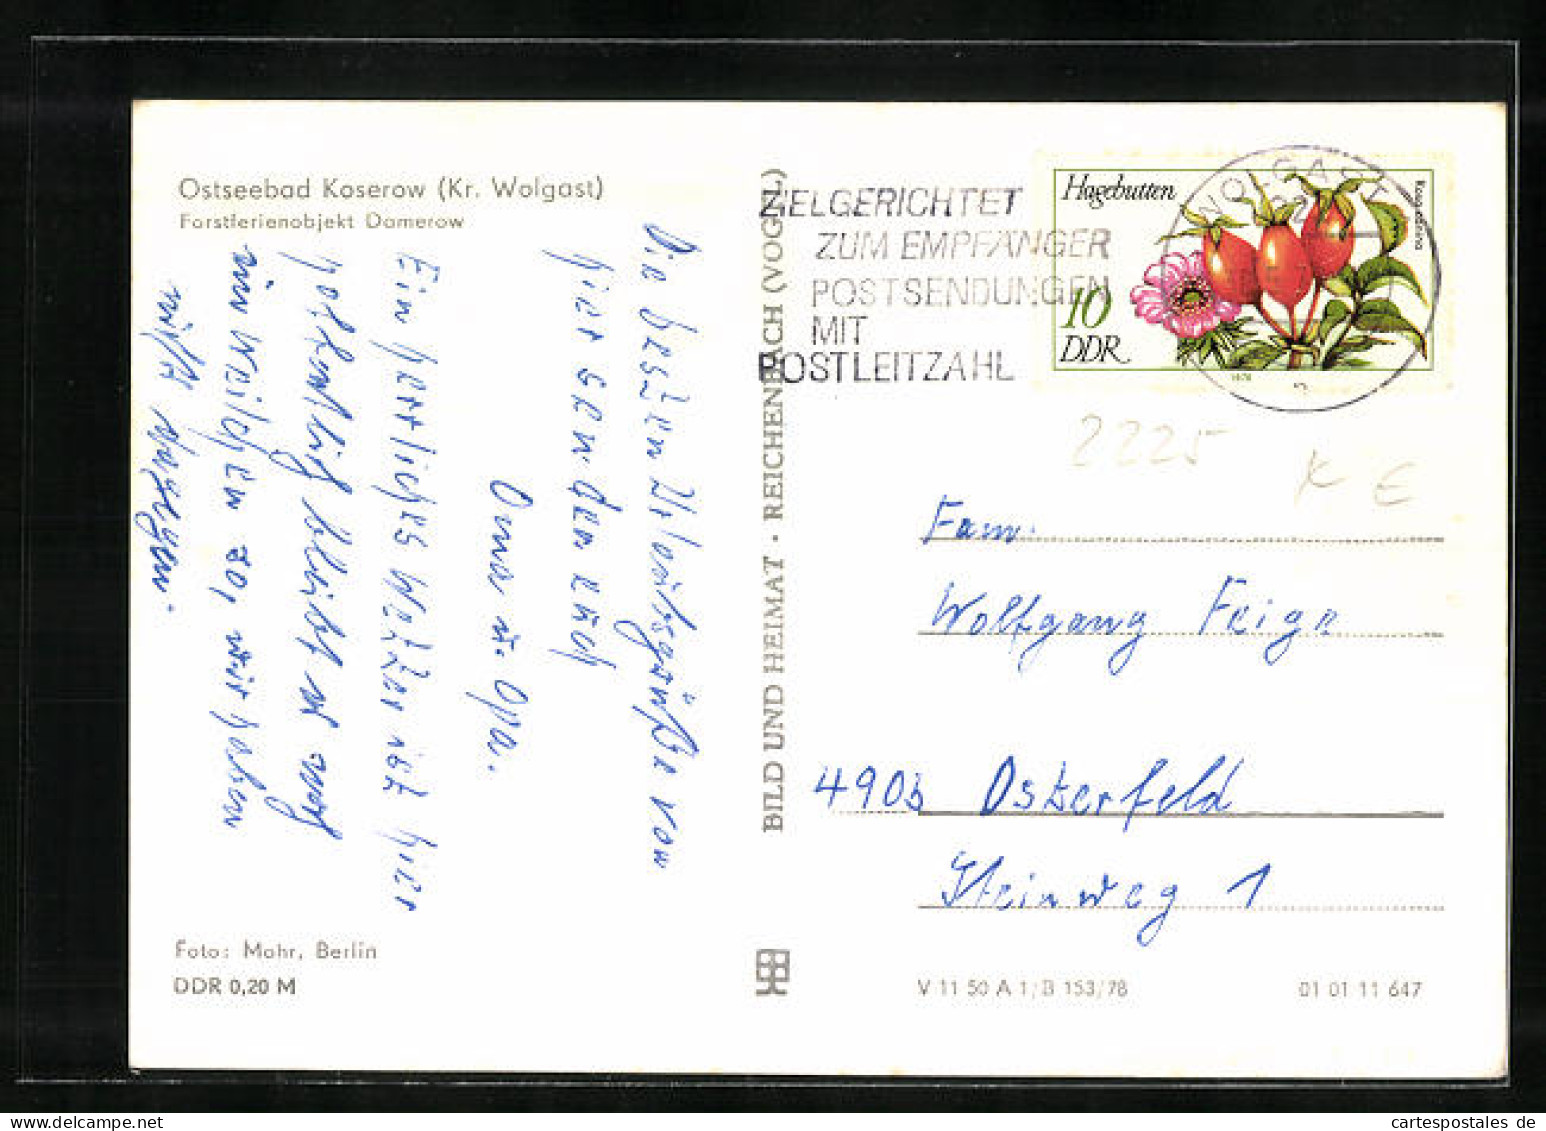 Ostseebad Koserow (Kr. Wolgast)
Forstferienobjekt Damerow
Die besten Urlaubsgrüße von
hier senden euch
Oma u. Opa.
Ein herrliches Wetter ist hier
hoffentlich bleibt es noch
ein Weilchen so, wir haben
nicht Regen.
Foto: Mohr, Berlin
DDR 0,20 M
BILD UND HEIMAT · REICHENBACH (VOGTL)
ZIELGERICHTET
ZUM EMPFÄNGER
POSTSENDUNGEN
MIT
POSTLEITZAHL
WOLGAST
Hagebutten
10
DDR
1978
2225
K €
Fam.
Wolfgang Feige
4903 Osterfeld
Steinweg 1
V 11 50 A 1/B 153/78
01 01 11 647
cartespostales de